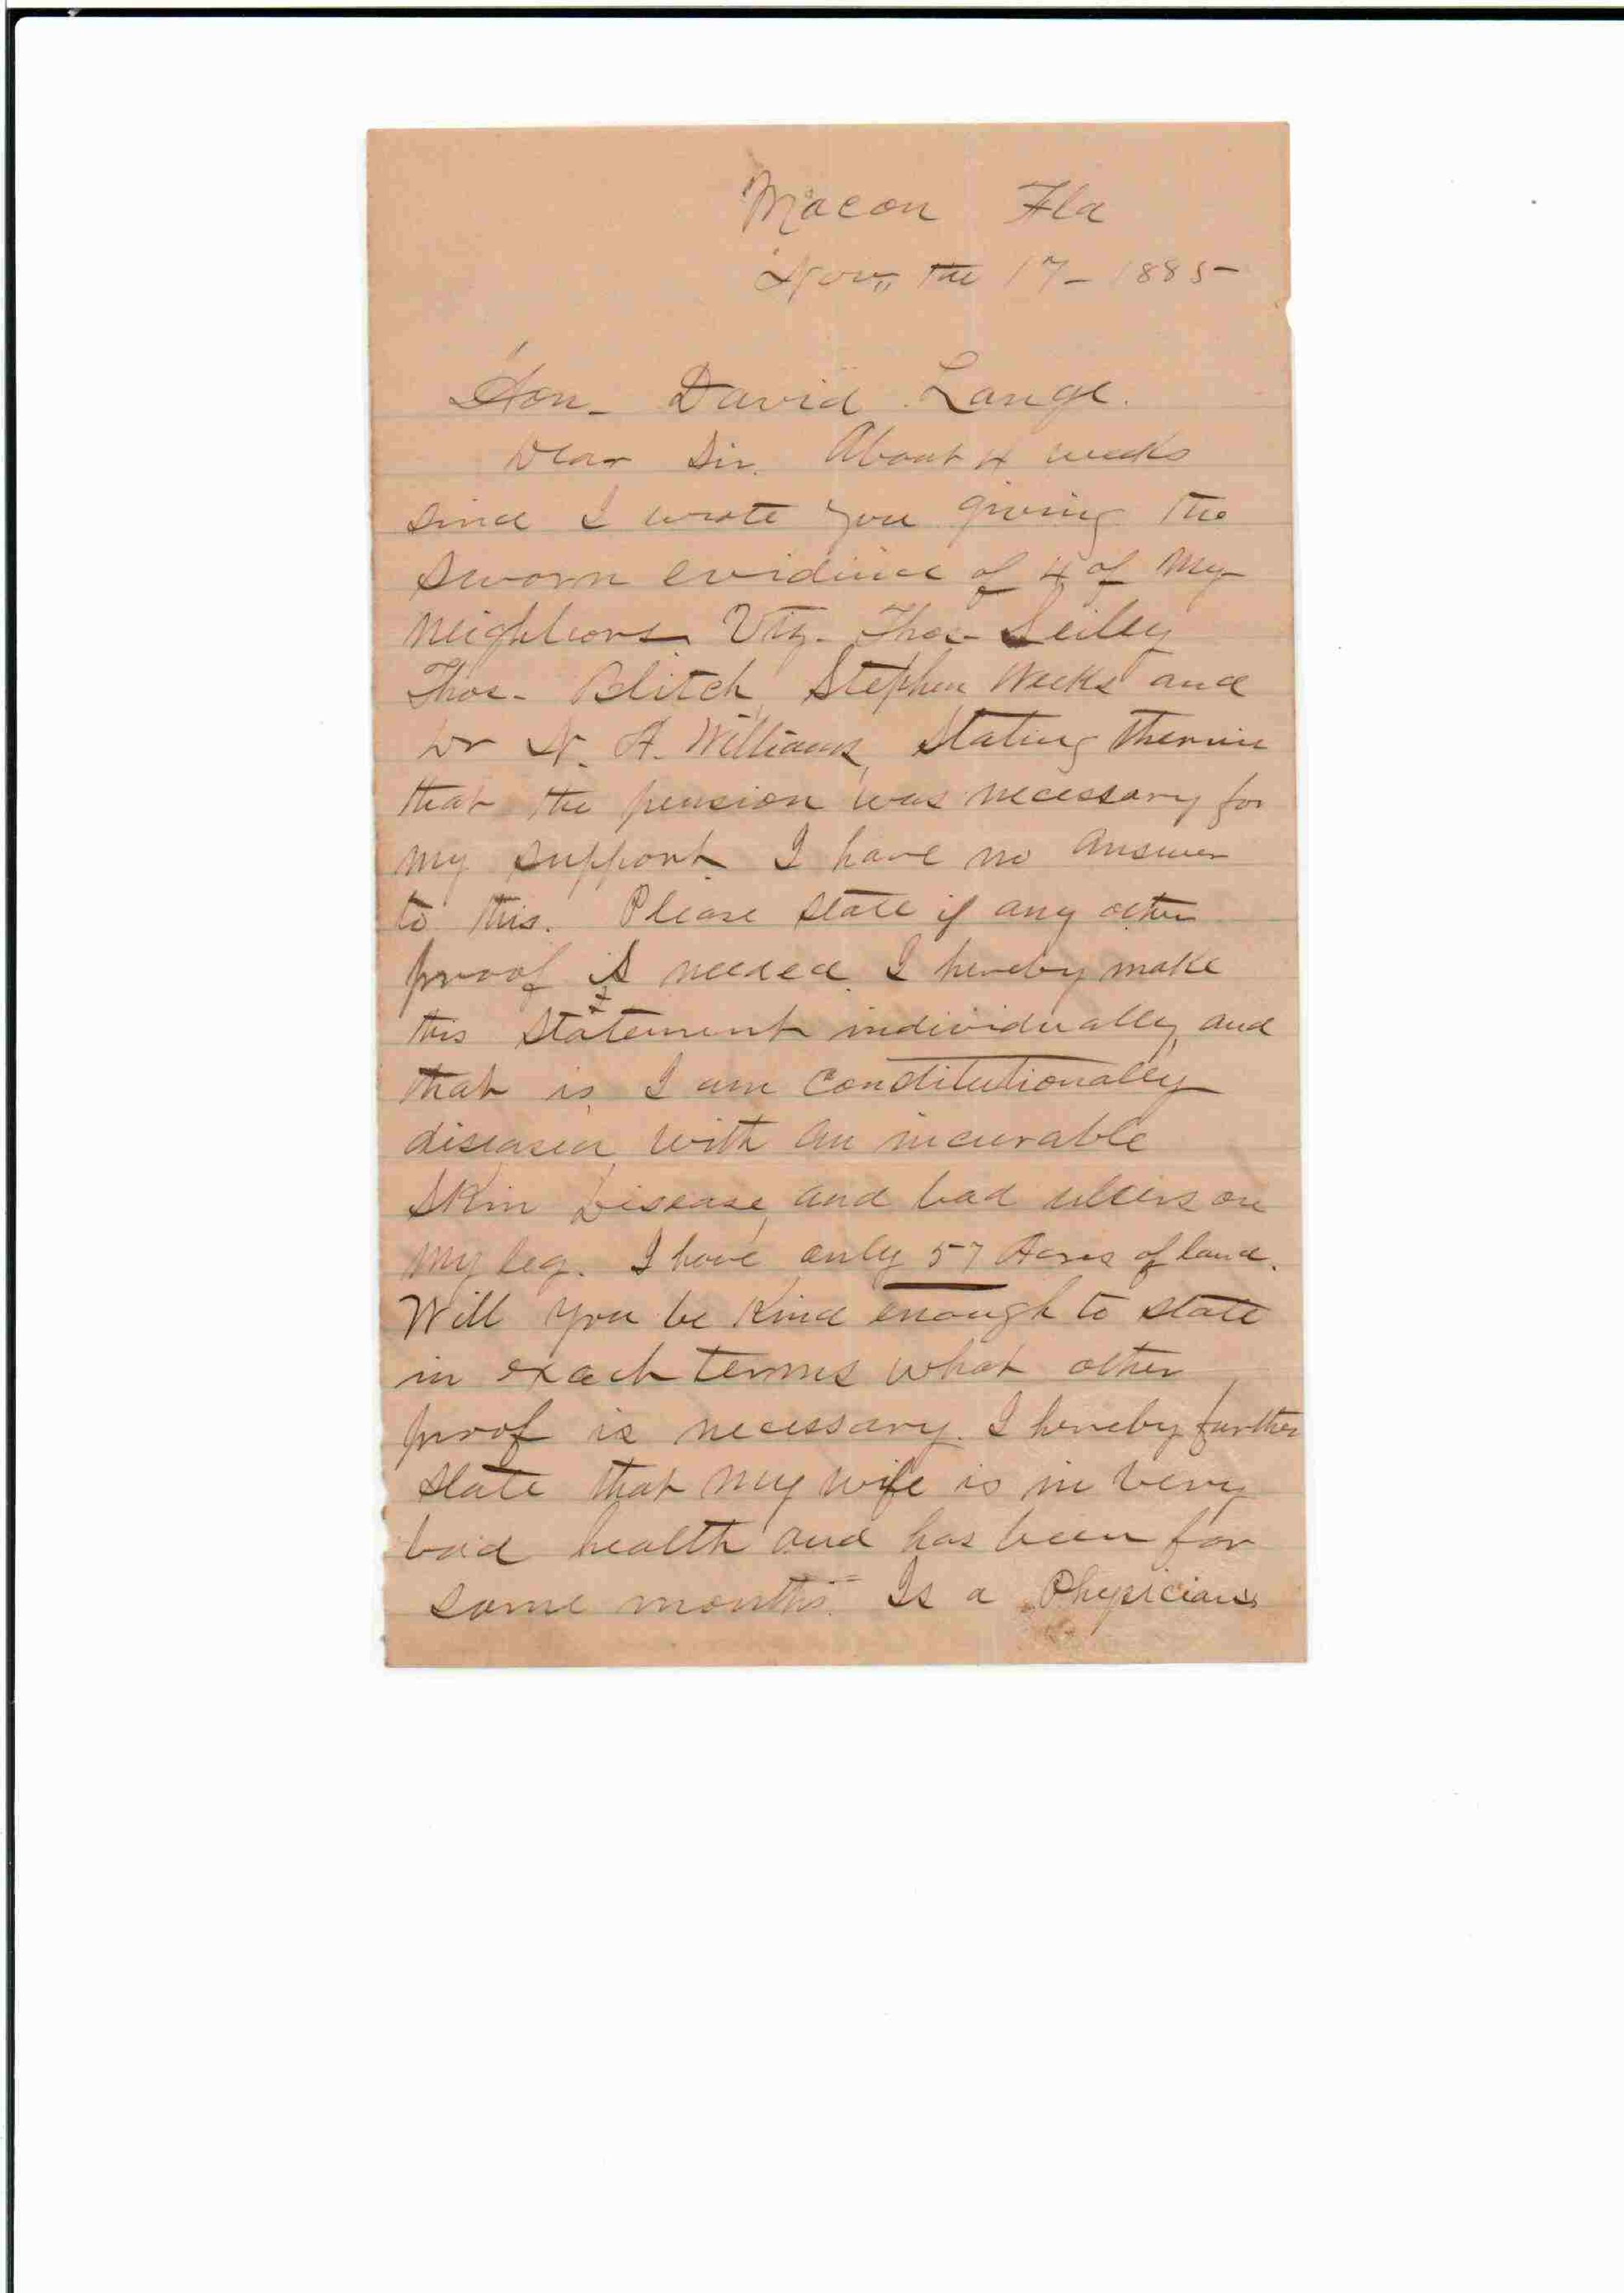 Macon Fla
Nov,, the 17 - 1885 -
Hon - David Lange.
Dear Sir. About 4 weeks
since I wrote you giving the
sworn evidence of 4 of my
neighbors Viz. Thos -
Thos - Blitch, Stephen Weeks and
Dr N. A. Williams, stating therein
that the pension was necessary for
my support. I have no answer
to this. Please state if any other
proof is needed. I hereby make
this statement individually, and
that is, I am constitutionally
diseased, with an incurable
Skin Disease, and bad ulcers on
my leg. I have only 57 Acres of land.
Will you be kind enough to state
in exact terms what other
proof is necessary. I hereby further
state that my wife is in very
bad health and has been for
some months. Is a Physicians